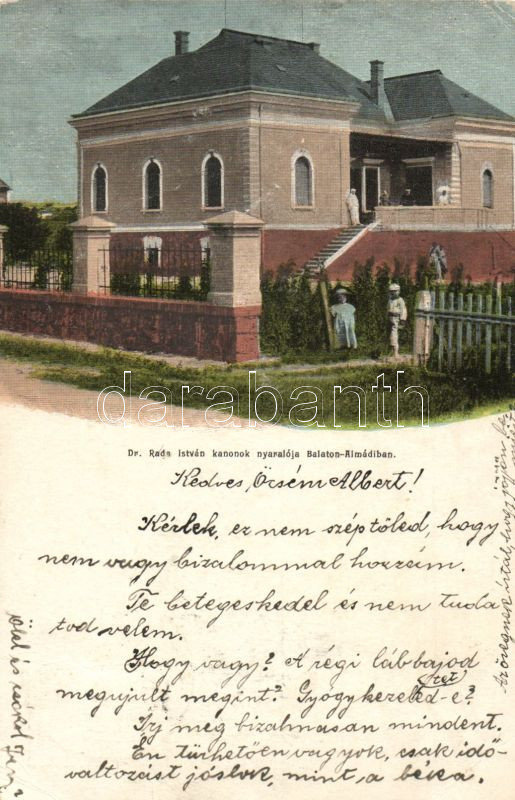 darabanth
Dr. Rada István kanonok nyaralója Balaton-Almádiban.
Kedves Öcsém Albert!
Kérlek, ez nem szép tőled, hogy
nem vagy bizalommal hozzám.
Te betegeskedel és nem tuda
tod velem.
Hogy vagy? A régi lábbajod
megujult megint? Gyógykezeled-e?
Irj meg bizalmasan mindent.
Én türhetően vagyok, csak idő-
változást jóslok, mint a béka.
Ölel és csókol
Az öregnek irtál, hogy jöjjön